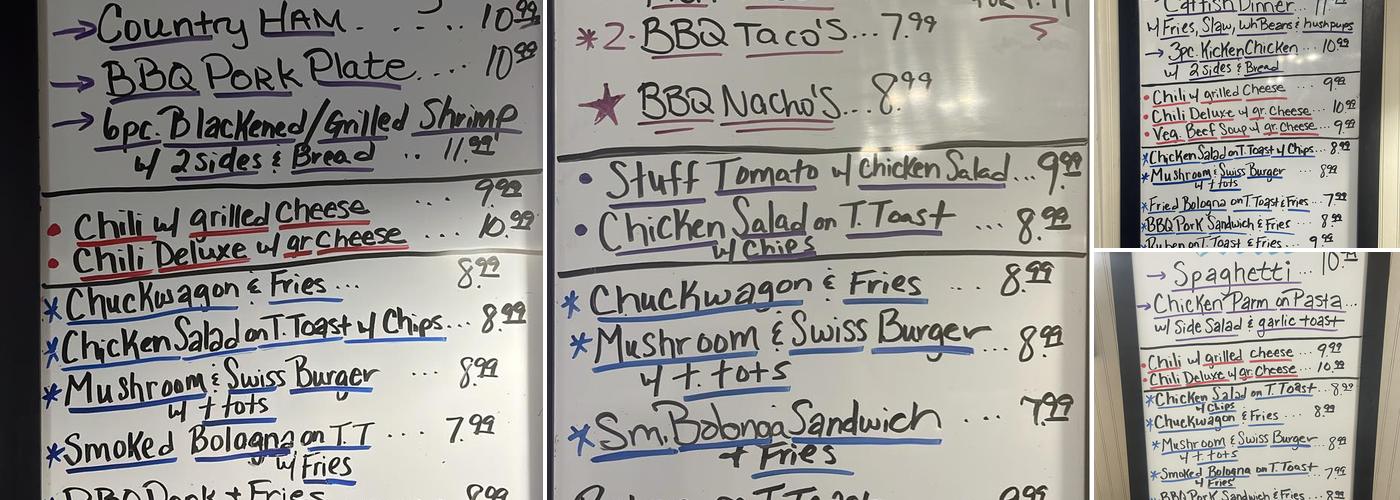 → Country HAM. . . . . 10.99
→ BBQ Pork Plate .... 10.99
→ 6pc. Blackened/Grilled Shrimp
w/ 2 Sides & Bread .. 11.99
• Chili w/ grilled Cheese ... 9.99
• Chili Deluxe w/ gr Cheese ... 10.99
* Chuckwagon & Fries ... 8.99
* Chicken Salad on T. Toast w/ Chips... 8.99
* Mushroom & Swiss Burger ... 8.99
w/ t tots
* Smoked Bologna on T.T ... 7.99
w/ Fries
BBQ Pork + Fries 8.99
* 2. BBQ Taco's... 7.99
★ BBQ Nacho's... 8.99
• Stuff Tomato w/ Chicken Salad... 9.99
• Chicken Salad on T. Toast ... 8.99
w/ Chips
* Chuckwagon & Fries ... 8.99
* Mushroom & Swiss Burger ... 8.99
w/ t. tots
* Sm. Bolonga Sandwich .. 7.99
+ Fries
T. Toast 9.99
Catfish Dinner
w/ Fries, Slaw, Wh Beans & hushpups
→ 3pc. Kicken Chicken ... 10.99
w/ 2 Sides & Bread
• Chili w/ grilled Cheese 9.99
• Chili Deluxe w/ gr. Cheese... 10.99
• Veg. Beef Soup w/ gr. Cheese... 9.99
* Chicken Salad on T. Toast w/ Chips... 8.99
* Mushroom & Swiss Burger 8.99
w/ t tots
* Fried Bologna on T. Toast & Fries... 7.99
* BBQ Pork Sandwich & Fries ... 8.99
Ruben on T. Toast & Fries .... 9.99
→ Spaghetti ... 10.
→ Chicken Parm on Pasta...
w/ Side Salad & garlic toast
• Chili w/ grilled cheese ... 9.99
• Chili Deluxe w/ gr. Cheese... 10.99
* Chicken Salad on T. Toast ... 8.99
w/ Chips
* Chuckwagon & Fries ... 8.99
* Mushroom & Swiss Burger... 8.99
w/ t tots
* Smoked Bologna on T. Toast ... 7.99
w/ Fries
BBQ Pork Sandwich & Fries... 8.99